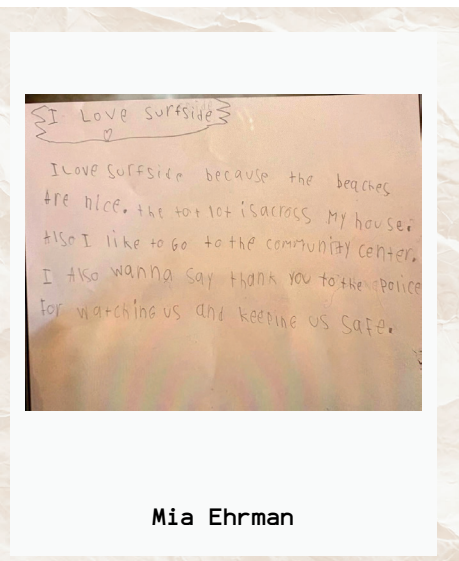 I Love Surfside
I Love Surfside because the beaches
Are nice. the tot lot is across My house.
Also I like to Go to the community center.
I Also wanna say thank you to the police
For watching us and keeping us safe.
Mia Ehrman